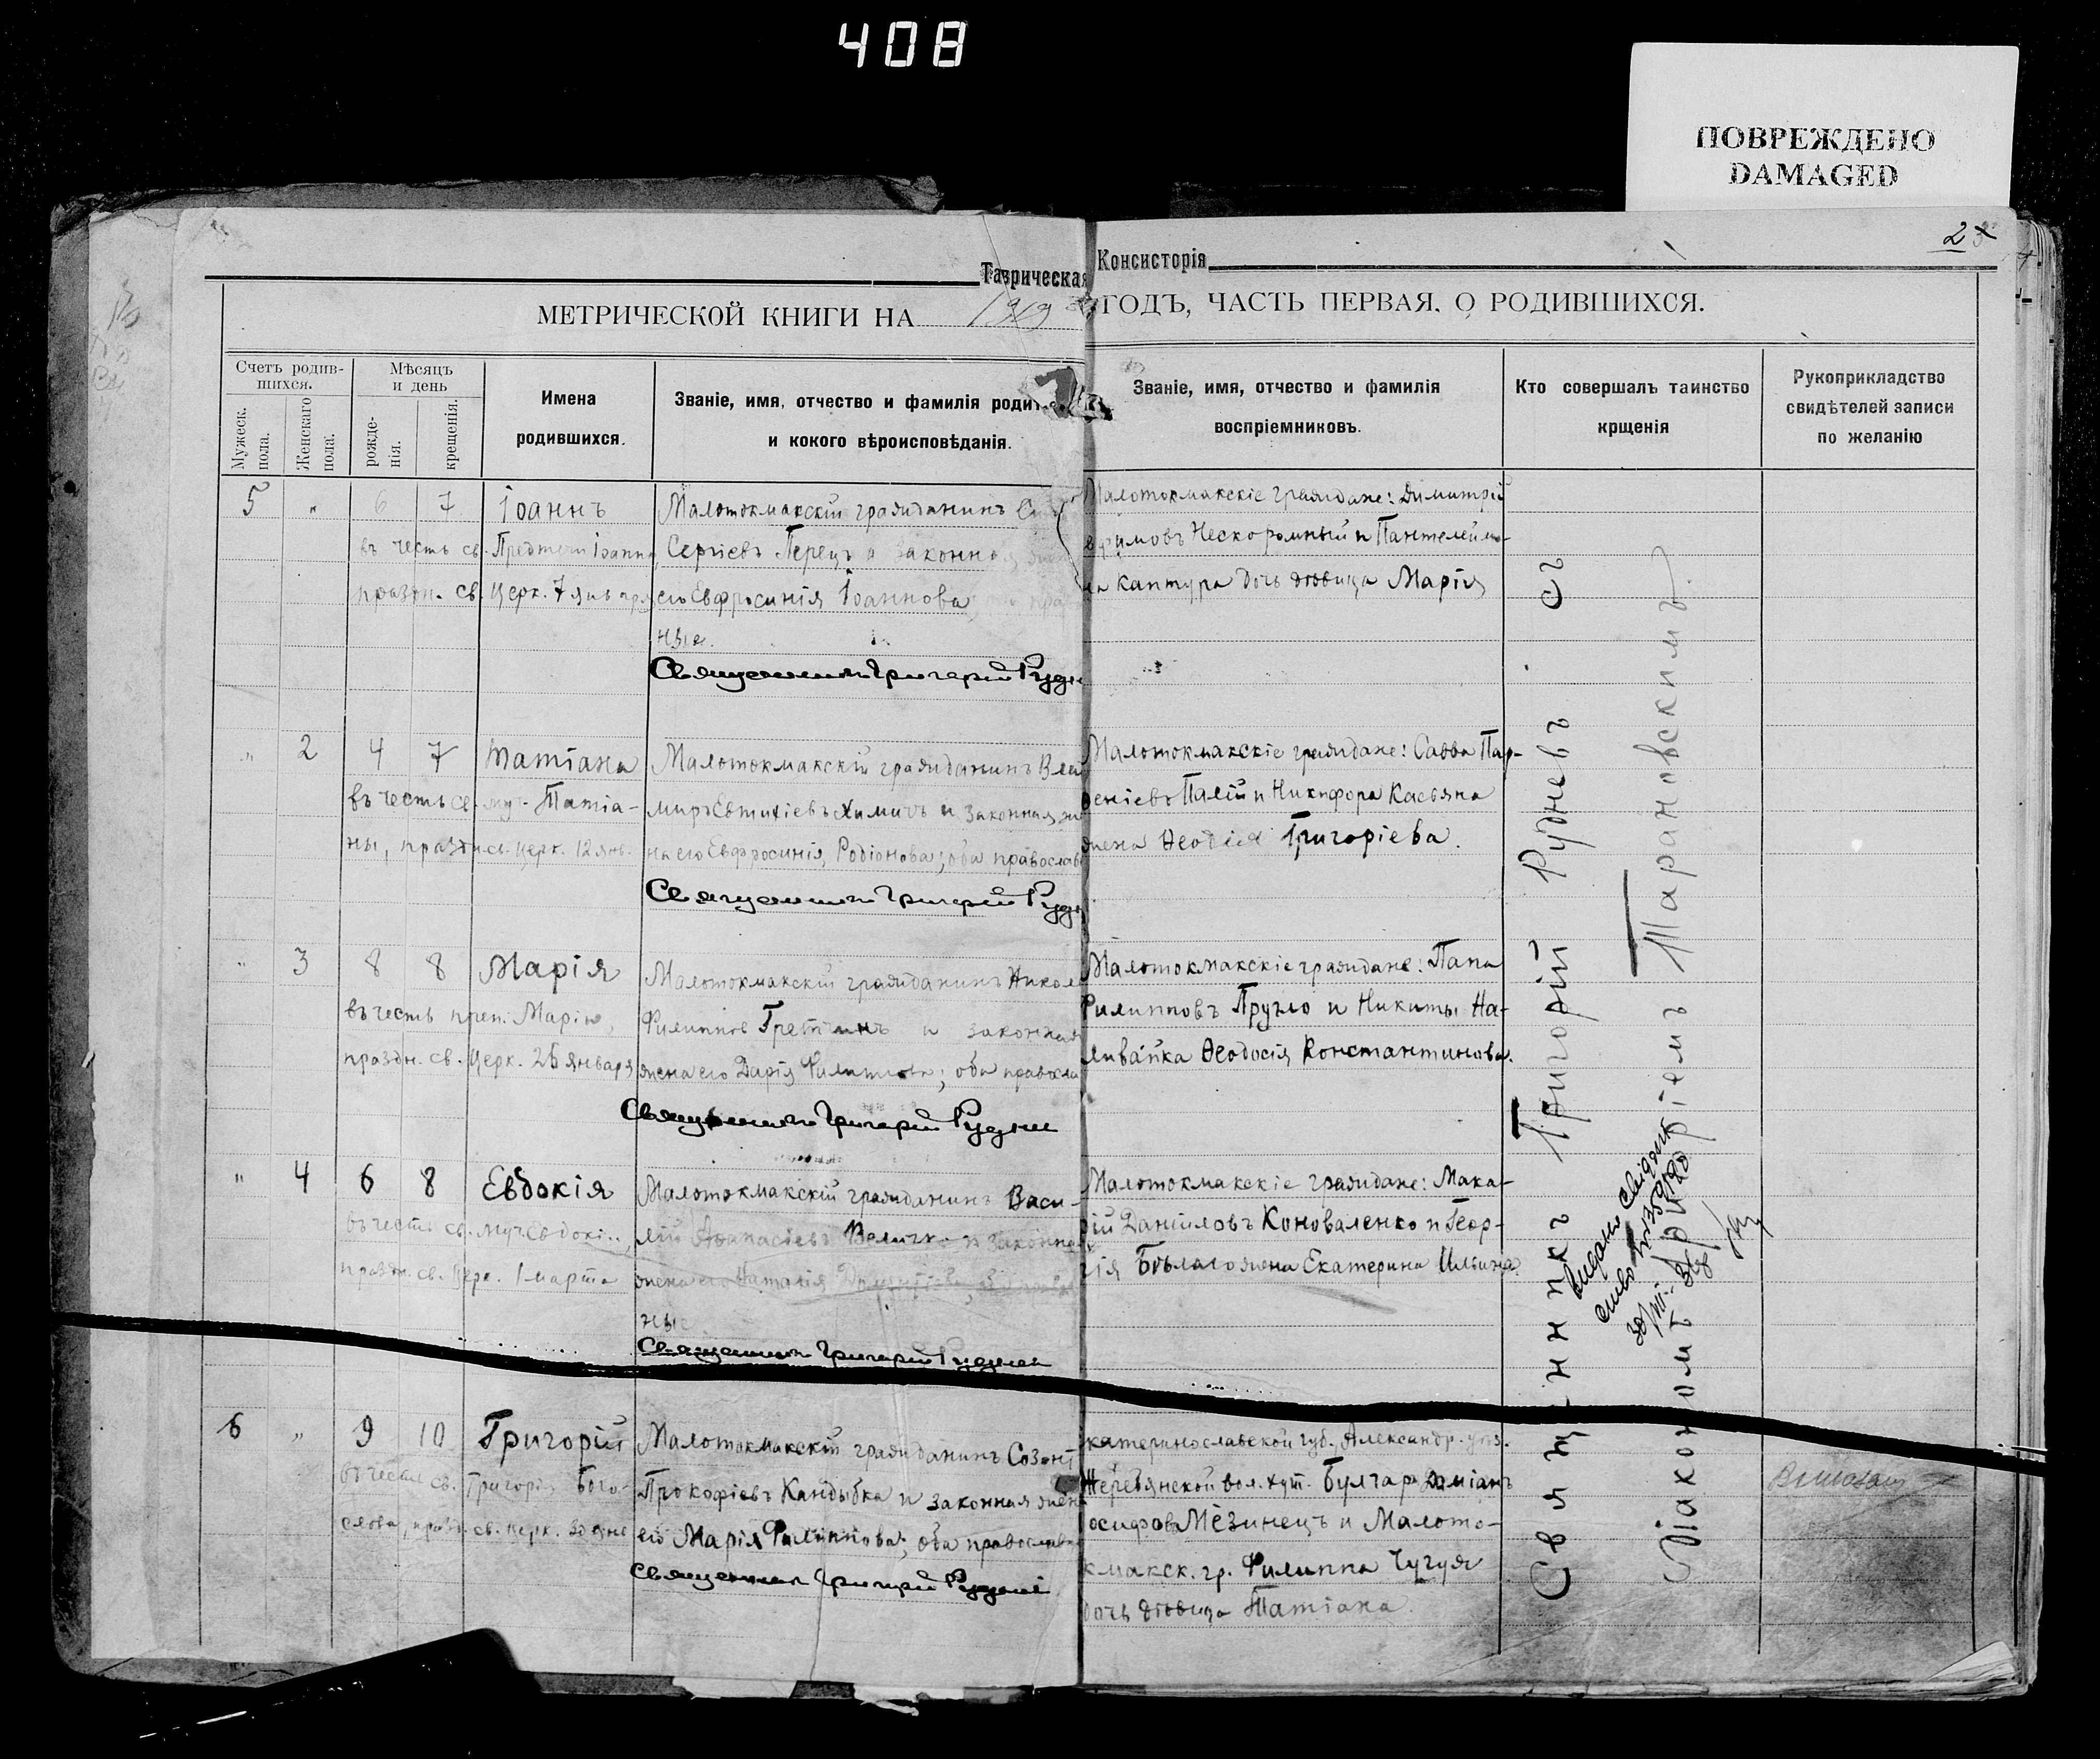 408
ПОВРЕЖДЕНО
DAMAGED
2
Таврическая Консисторія
МЕТРИЧЕСКОЙ КНИГИ НА 1919 ГОДЪ, ЧАСТЬ ПЕРВАЯ, О РОДИВШИХСЯ.
Счетъ родив-
шихся.
Мужеск.
пола.
Женскаго
пола.
Мѣсяцъ
и день
рожде-
нія.
крещенія.
Имена
родившихся.
Званіе, имя, отчество и фамилія
и кокого вѣроисповѣданія.
Званіе, имя, отчество и фамилія
воспріемниковъ.
Кто совершалъ таинство
крщенія
Рукоприкладство
свидѣтелей записи
по желанію
5 " 6 7 Іоаннъ
въ честь св. Предтечи Іоанна,
праздн. св. церк. 7 янв
Малотокмакскій гражданинъ
Сергіевъ Перецъ и законная
его Евфросинія Іоаннова
ные.
Священникъ Григорій
Малотокмакскіе граждане: Димитрій
Нескоромный и Пантелеймо-
на Кантура дочь дѣвица Марія
" 2 4 7 Татіана
въ честь св. муч. Татіа-
ны, праздн. св. церк. 12 янв.
Малотокмакскій гражданинъ Вла
миръ Евтихіевъ Химичъ и законная же
на его Евфросинія Родіонова; оба православ
Священникъ Григорій
Малотокмакскіе граждане: Савва Пар-
феніевъ Палій и Никифора Касьяна
жена Григоріева.
" 3 8 8 Марія
въ честь преп. Маріи,
праздн. св. церк. 26 января
Малотокмакскій гражданинъ Никола
и законная
жена его Дарія Филиппова; оба правосла
Священникъ Григорій Руднев
Малотокмакскіе граждане:
Филипповъ Пругло и Никиты На-
ливайка Ѳеодосія Константинова.
" 4 6 8 Евдокія
въ честь св. муч. Евдокі
праздн. св. церк. 1 марта
Малотокмакскій гражданинъ Васи-
лій Аѳанасіевъ Величко и законная
жена его Наталія
ные
Священникъ Григорій Руднев
Малотокмакскіе граждане: Мака-
рій Даніиловъ Коноваленко и Геор-
гія Бѣлаго жена Екатерина Ильина.
6 " 9 10 Григорій
въ честь св. Григорія Бого-
слова, праздн. св. церк. 30 янв
Малотокмакскій гражданинъ Созонт
Прокофіевъ Кандыбка и законная жена
его Марія Филиппова; оба православн
Священникъ Григорій Руднев
катеринославской губ. Александр. уѣз.
Жеребянской вол. хут. Булгар Даміанъ
осифовъ Мезинецъ и Малото-
кмакск. гр. Филиппа Чугуя
дочь дѣвица Татіана.
Священникъ Григорій Рудневъ съ
Діакономъ Тарановскимъ.
Видано свідоцт